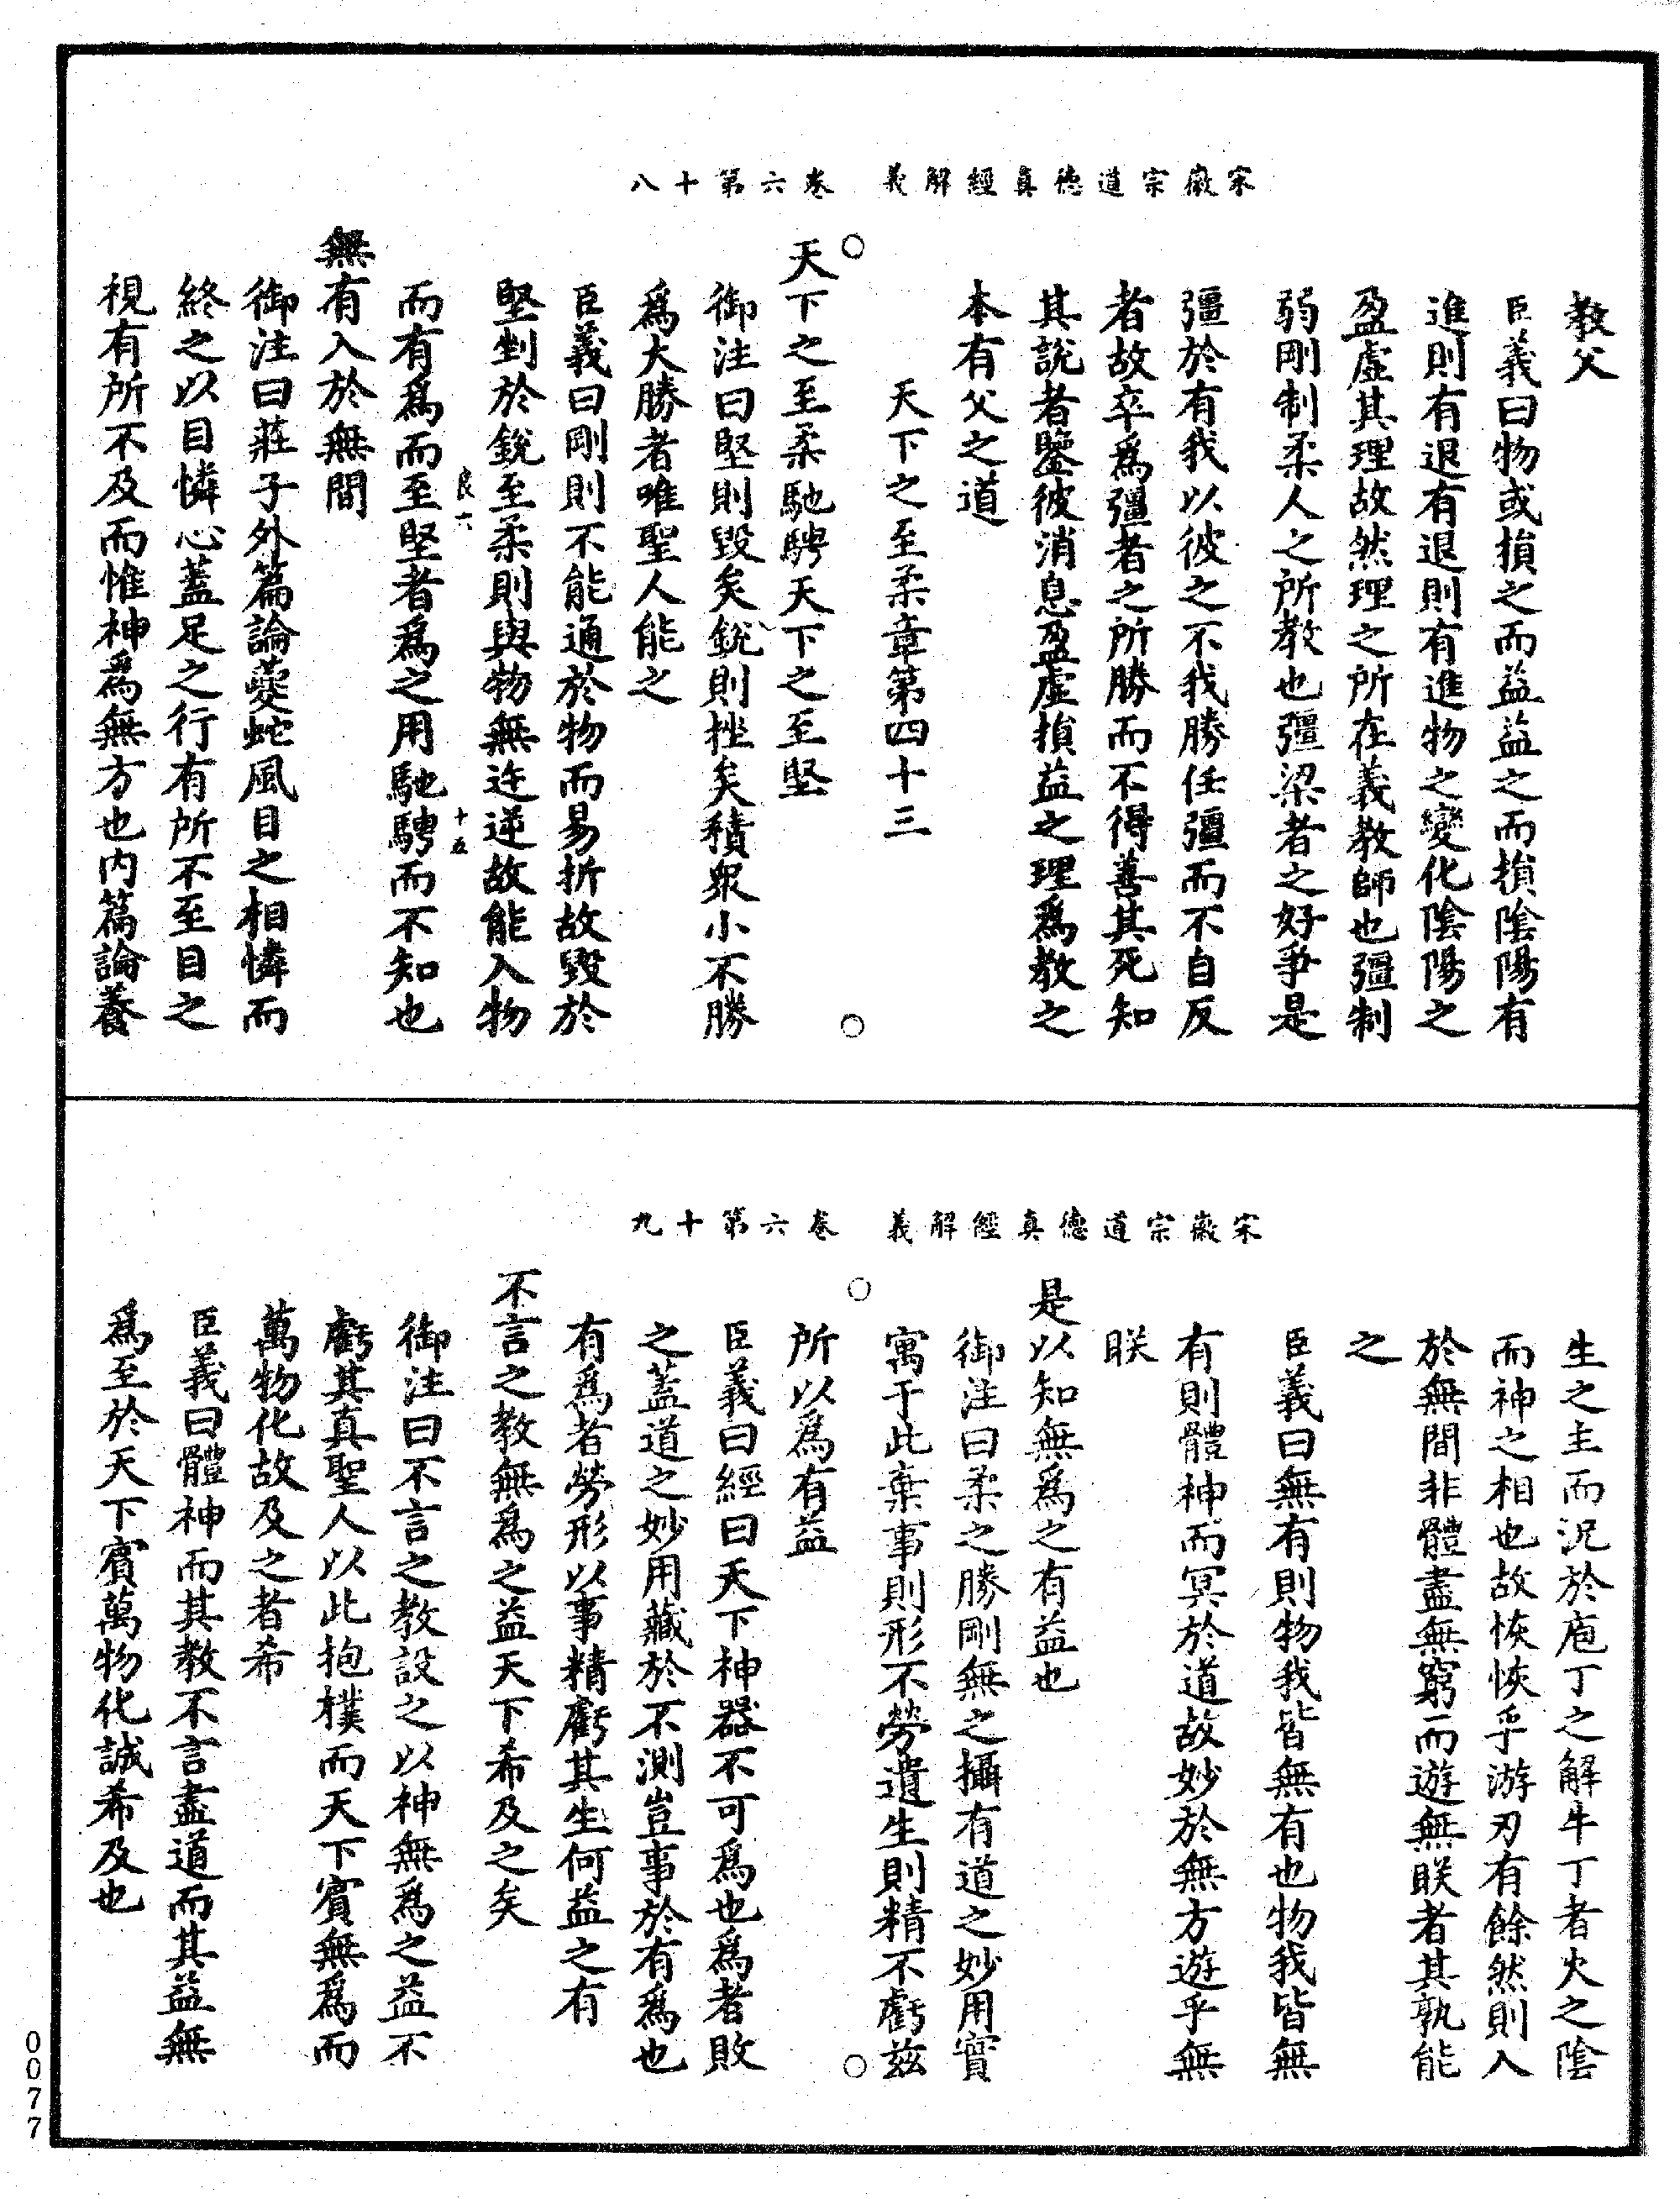 宋徽宗道德真經解義　卷六第十八
教父
臣義曰物或損之而益益之而損陰陽有
進則有退有退則有進物之變化陰陽之
盈虛其理故然理之所在義教師也彊制
弱剛制柔人之所教也彊梁者之好爭是
彊於有我以彼之不我勝任彊而不自反
者故卒爲彊者之所勝而不得善其死知
其說者鑒彼消息盈虛損益之理爲教之
本有父之道
天下之至柔章第四十三
天下之至柔馳騁天下之至堅
御注曰堅則毀矣銳則挫矣積衆小不勝
爲大勝者唯聖人能之
臣義曰剛則不能通於物而易折故毀於
堅剉於銳至柔則與物無迕逆故能入物
良六　十五
而有爲而至堅者爲之用馳騁而不知也
無有入於無間
御注曰莊子外篇論夔蛇風目之相憐而
終之以目憐心蓋足之行有所不至目之
視有所不及而惟神爲無方也內篇論養
宋徽宗道德真經解義　卷六第十九
生之主而況於庖丁之解牛丁者火之陰
而神之相也故恢恢乎游刃有餘然則入
於無間非體盡無窮而遊無朕者其孰能
之
臣義曰無有則物我皆無有也物我皆無
有則體神而冥於道故妙於無方遊乎無
朕
是以知無爲之有益也
御注曰柔之勝剛無之攝有道之妙用實
寓于此棄事則形不勞遺生則精不虧茲
所以爲有益
臣義曰經曰天下神器不可爲也爲者敗
之蓋道之妙用藏於不測豈事於有爲也
有爲者勞形以事精虧其生何益之有
不言之教無爲之益天下希及之矣
御注曰不言之教設之以神無爲之益不
虧其真聖人以此抱樸而天下賓無爲而
萬物化故及之者希
臣義曰體神而其教不言盡道而其益無
爲至於天下賓萬物化誠希及也
0077